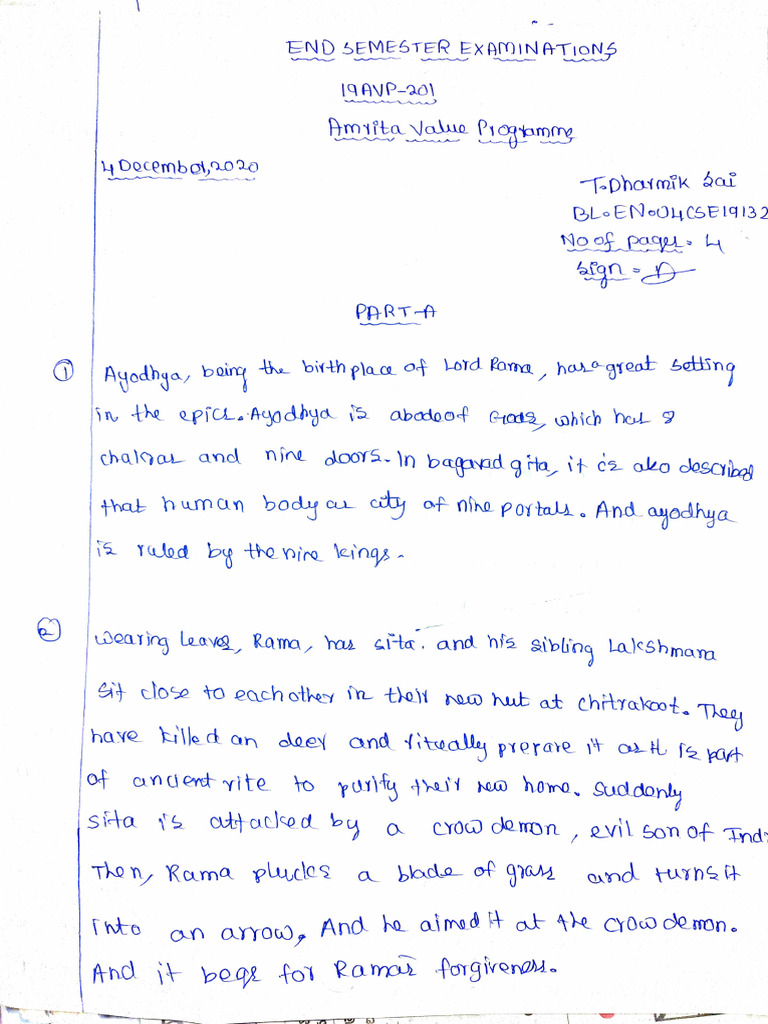 END SEMESTER EXAMINATIONS
19AVP-201
Amrita Value Programme
4 December, 2020
T. Dharmik Sai
BL.EN.U4CSE19132
No of pages = 4
Sign =
PART-A
① Ayodhya, being the birth place of Lord Rama, has a great setting
in the epics. Ayodhya is abode of Gods, which has 8
chakras and nine doors. In bagavad gita, it is also described
that human body as city of nine portals. And ayodhya
is ruled by the nine kings.
② Wearing leaves, Rama, has sita. and his sibling Lakshmana
sit close to each other in their new hut at chitrakoot. They
have killed an deer and ritually prepare it as it is part
of ancient rite to purify their new home. Suddenly
sita is attacked by a crow demon, evil son of Ind
Then, Rama plucks a blade of grass and turns it
into an arrow. And he aimed it at the crow demon.
And it begs for Rama's forgiveness.